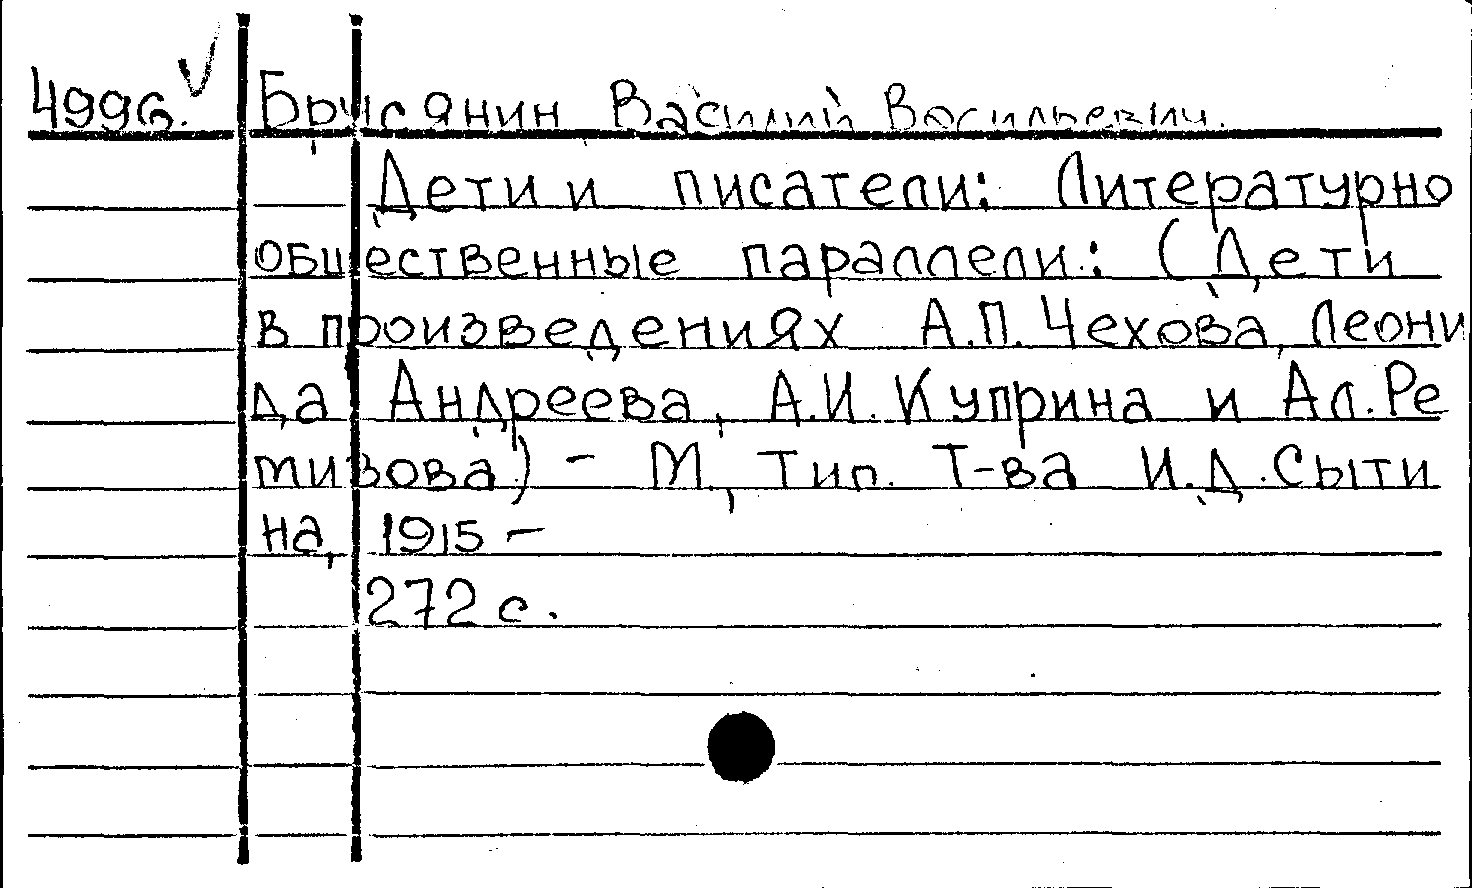 4996. Брусянин Василий Васильевич.
Дети и писатели: Литературно
общественные параллели.: (Дети
в произведениях А.П. Чехова, Леони
да Андреева, А.И. Куприна и Ал. Ре
мизова) - М., Тип. Т-ва И.Д. Сыти
на, 1915 -
272 с.